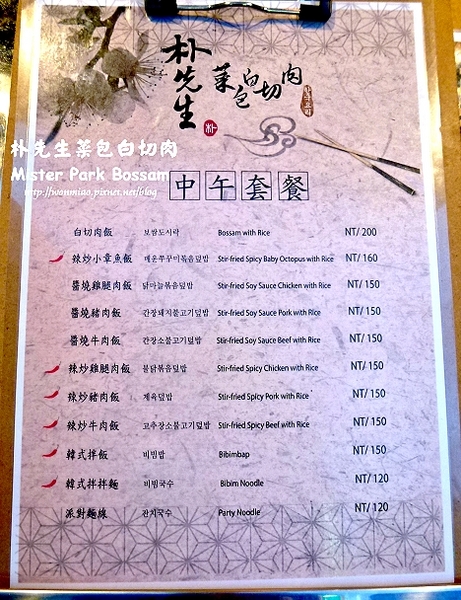 朴先生
菜包白切肉
朴
朴先生菜包白切肉
Mister Park Bossam
http://wanmiao.pixnet.net/blog
中午套餐
白切肉飯 보쌈도시락 Bossam with Rice NT/ 200
辣炒小章魚飯 매운쭈꾸미볶음덮밥 Stir-fried Spicy Baby Octopus with Rice NT/ 160
醬燒雞腿肉飯 닭마늘볶음덮밥 Stir-fried Soy Sauce Chicken with Rice NT/ 150
醬燒豬肉飯 간장돼지불고기덮밥 Stir-fried Soy Sauce Pork with Rice NT/ 150
醬燒牛肉飯 간장소불고기덮밥 Stir-fried Soy Sauce Beef with Rice NT/ 150
辣炒雞腿肉飯 불닭볶음덮밥 Stir-fried Spicy Chicken with Rice NT/ 150
辣炒豬肉飯 제육덮밥 Stir-fried Spicy Pork with Rice NT/ 150
辣炒牛肉飯 고추장소불고기덮밥 Stir-fried Spicy Beef with Rice NT/ 150
韓式拌飯 비빔밥 Bibimbap NT/ 150
韓式拌拌麵 비빔국수 Bibim Noodle NT/ 120
派對麵線 잔치국수 Party Noodle NT/ 120